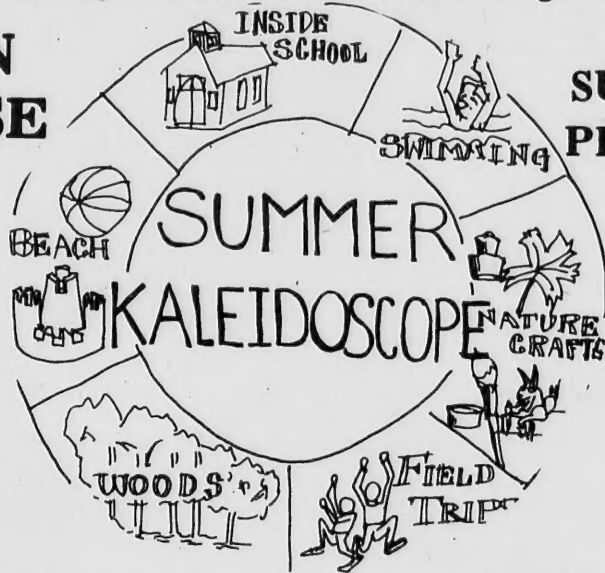 INSIDE
SCHOOL
SWIMMING
SUMMER
KALEIDOSCOPE
BEACH
NATURE
CRAFTS
WOODS
FIELD
TRIP